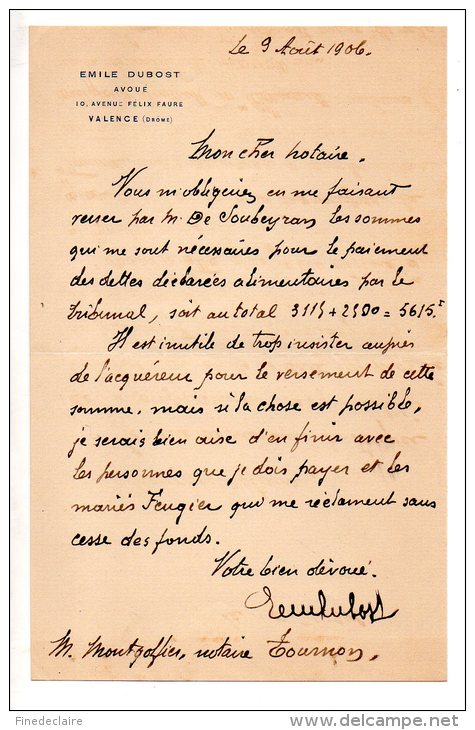 Le 9 Août 1906.
EMILE DUBOST
AVOUÉ
10, AVENUE FÉLIX FAURE
VALENCE (DRÔME)
Mon cher notaire.
Vous m'obligeriez en me faisant
verser par M. De Soubeyran les sommes
qui me sont nécessaires pour le paiement
des dettes déclarées alimentaires par le
tribunal, soit au total 3115 + 2500 = 5615.f
Il est inutile de trop insister auprès
de l'acquéreur pour le versement de cette
somme, mais si la chose est possible,
je serais bien aise d'en finir avec
les personnes que je dois payer et les
mariés Feugier qui me réclament sans
cesse des fonds.
Votre bien dévoué.
EmDubost
M. Montgolfier, notaire Tournon.
Finedeclaire
www.delcampe.net